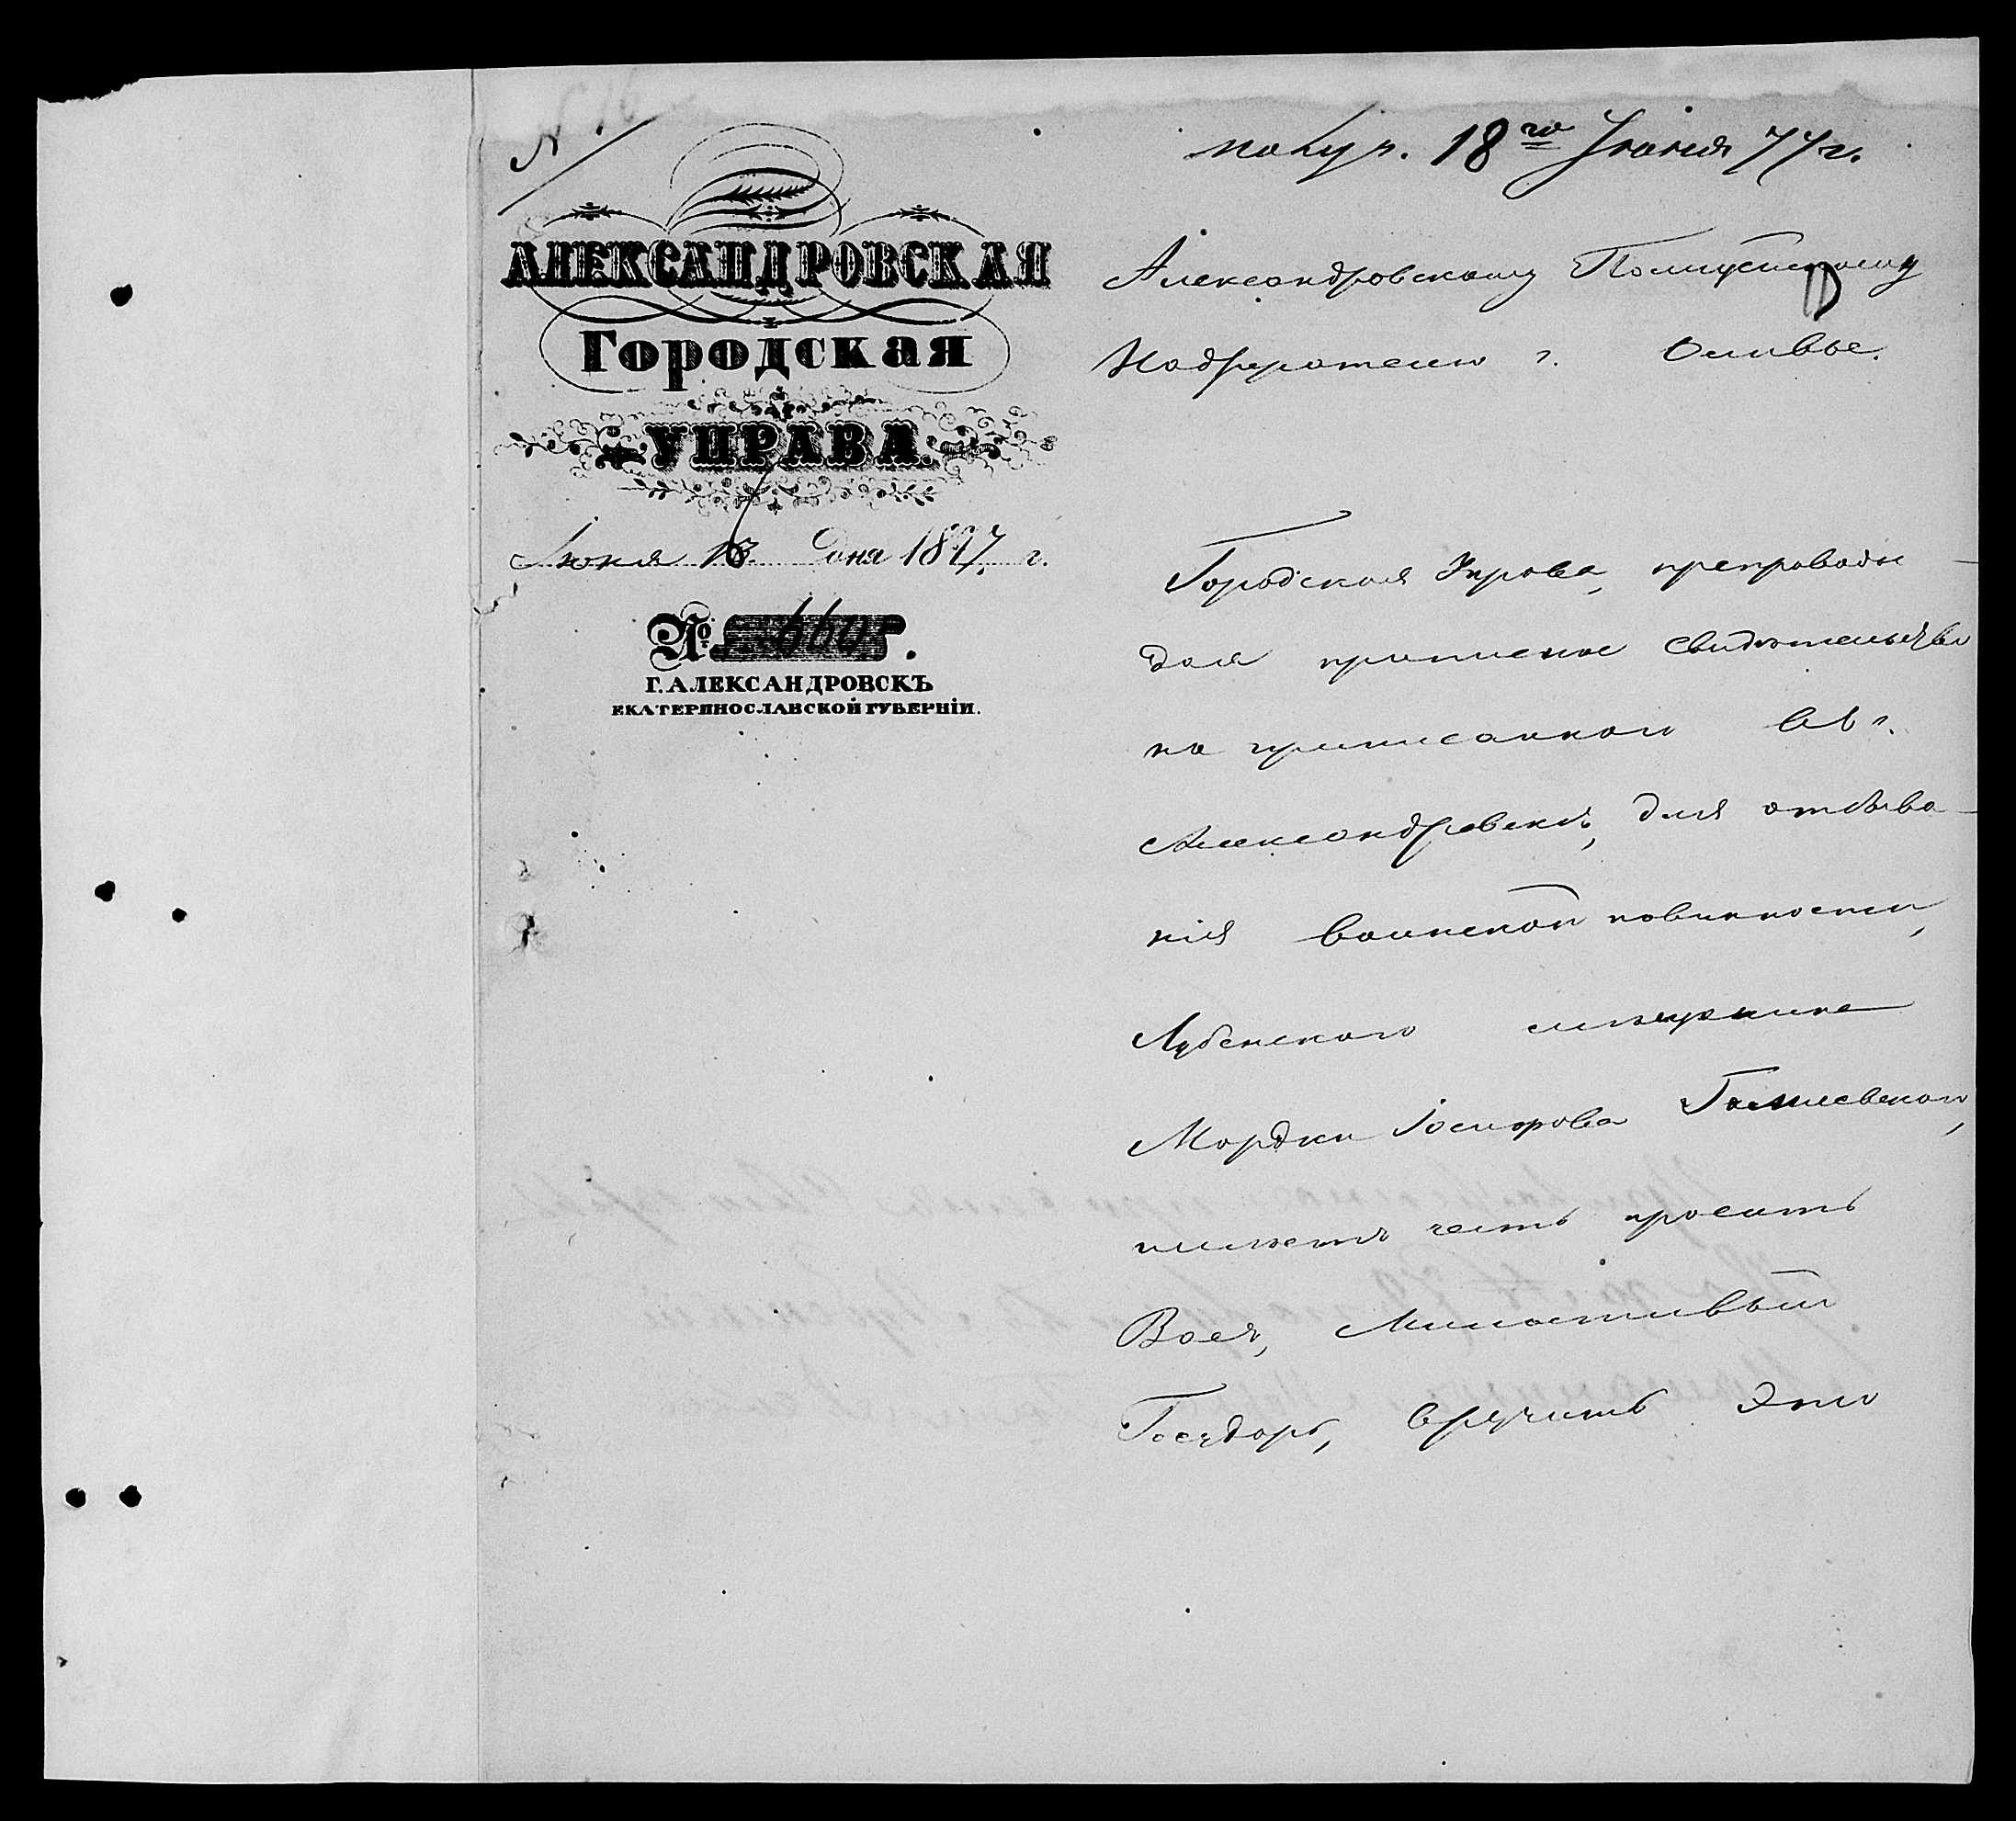 получ. 18го Іюня 77 г.
АЛЕКСАНДРОВСКАЯ
Городская
УПРАВА.
Іюня 13. дня 1877 г.
№ 660.
Г. АЛЕКСАНДРОВСКЪ
ЕКАТЕРИНОСЛАВСКОЙ ГУБЕРНІИ.
Александровскому Полицейскому
Надзирателю г.
Городская Управа, препровож-
дая при
на приписаннаго въ г.
Александровскѣ, для отбыва-
нія воинской повинности,
Лубенскаго мѣщанина
Мордки Іосифова
имѣетъ честь просить
Васъ, Милостивый
Государь, вручить это